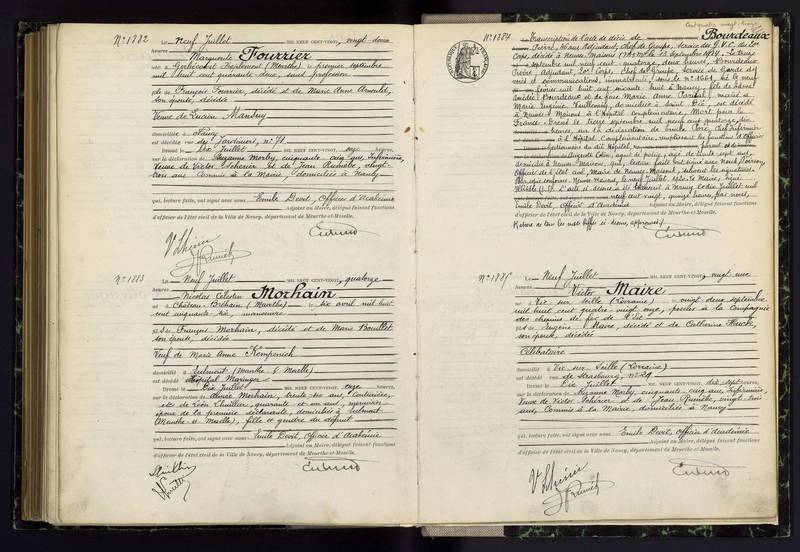 N° 1882
Le Neuf Juillet MIL NEUF CENT-VINGT, vingt deux
heures
Marguerite Fourrier
née à Gerbéviller Haplemont (Meurthe) le premier septembre
mil huit cent quarante deux, sans profession
fille de François Fourrier, décédé et de Marie Anne
son épouse, décédée
Veuve de Lucien Mansuy
domiciliée à Nancy
est décédée rue des Jardiniers, n° 71
Dressé le dix Juillet MIL NEUF CENT-VINGT, onze heures,
sur la déclaration de Suzanne Morby, cinquante cinq ans, infirmière,
Veuve de Victor Scherier et de Jean Runèche, vingt
trois ans, Commis à la Mairie, domiciliés à Nancy
qui, lecture faite, ont signé avec nous Emile Devit, Officier d'académie
Adjoint au Maire, délégué faisant fonctions
d'officier de l'état civil de la Ville de Nancy, département de Meurthe-et-Moselle.
N° 1883
Le Neuf Juillet MIL NEUF CENT-VINGT, quatorze
heures
Nicolas Celestin Morhain
né à Château-Bréhain (Meurthe) le six avril mil huit
cent cinquante six, manœuvre
fils de François Morhain, décédé et de Marie Bouillet
son épouse, décédée
Veuf de Marie Anne Kempenich
domicilié à Pulmont (Meurthe & Moselle)
est décédé Hôpital Maringer
Dressé le Dix Juillet MIL NEUF CENT-VINGT, onze heures,
sur la déclaration de Aimée Morhain, trente six ans, couturière,
et de Léon Thuillier, quarante et un ans, menuisier
époux de la première déclarante, domiciliés à Pulmont
(Meurthe et Moselle), fille et gendre du défunt
qui, lecture faite, ont signé avec nous Emile Devit, Officier d'académie
Adjoint au Maire, délégué faisant fonctions
d'officier de l'état civil de la Ville de Nancy, département de Meurthe-et-Moselle.
Cent quatre vingt treize
N° 1884
Transcription de l'acte de décès de Bourdeaux
Pierre, Adjudant, chef de Groupe, Service des G.V.C. du 20e
Corps, décédé à Neuves-Maisons (M. & M.) le 13 septembre 1914. Le treize
septembre mil neuf cent quatorze, deux heures, Bourdeaux
Pierre, Adjudant, 20e Corps, Chef de Groupe, service de Garde des
voies et communications, immatriculé sous le n° 1661, né le neuf
février mil huit cent soixante huit à Nancy, fils de
Amédée Bourdeaux et de feue Marie Anne marié à
Marie Eugénie Vuillemin, domicilié à Saint Dié, est décédé
à Neuves-Maisons à l'Hôpital complémentaire, Mort pour la
France. Dressé le treize septembre mil neuf cent quatorze, dix
heures, sur la déclaration de Emile Voré, Chef infirmier
à l'Hôpital Complémentaire, remplissant les fonctions d'Officier
gestionnaire du dit Hôpital,
Auguste Colin, agent de police, âgé de trente sept ans,
domicilié à Neuves-Maisons, qui, lecture faite ont signé avec nous
Officier de l'État civil, Maire de Neuves-Maisons, suivent les signatures.
Pour copie conforme. Neuves-Maisons, le neuf Juillet 1920. Le Maire, signé:
illisible (L.S.) L'acte ci dessus a été transcrit à Nancy le dix Juillet mil
neuf cent vingt, quinze heures, par nous,
Emile Devit, Officier d'académie
Adjoint au Maire, délégué faisant fonctions
d'officier de l'état civil de la Ville de Nancy, département de Meurthe-et-Moselle.
N° 1885
Le Neuf Juillet MIL NEUF CENT-VINGT, vingt une
heures
Victor Maire
né à Vic sur Seille (Lorraine) le vingt deux septembre
mil huit cent quatre vingt onze, facteur à la Compagnie
des chemins de fer de l'Est
fils de Eugène Maire, décédé et de Catherine
son épouse, décédée
Célibataire
domicilié à Vic sur Seille (Lorraine)
est décédé rue de Strasbourg, n° 29
Dressé le Dix Juillet MIL NEUF CENT-VINGT, dix sept heures,
sur la déclaration de Suzanne Morby, cinquante cinq ans, infirmière,
Veuve de Victor Scherier et de Jean Runèche, vingt trois
ans, Commis à la Mairie, domiciliés à Nancy
qui, lecture faite, ont signé avec nous Emile Devit, Officier d'académie
Adjoint au Maire, délégué faisant fonctions
d'officier de l'état civil de la Ville de Nancy, département de Meurthe-et-Moselle.